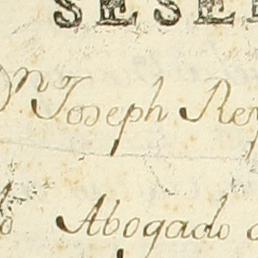 SESE
Dn Joseph Re
Abogado